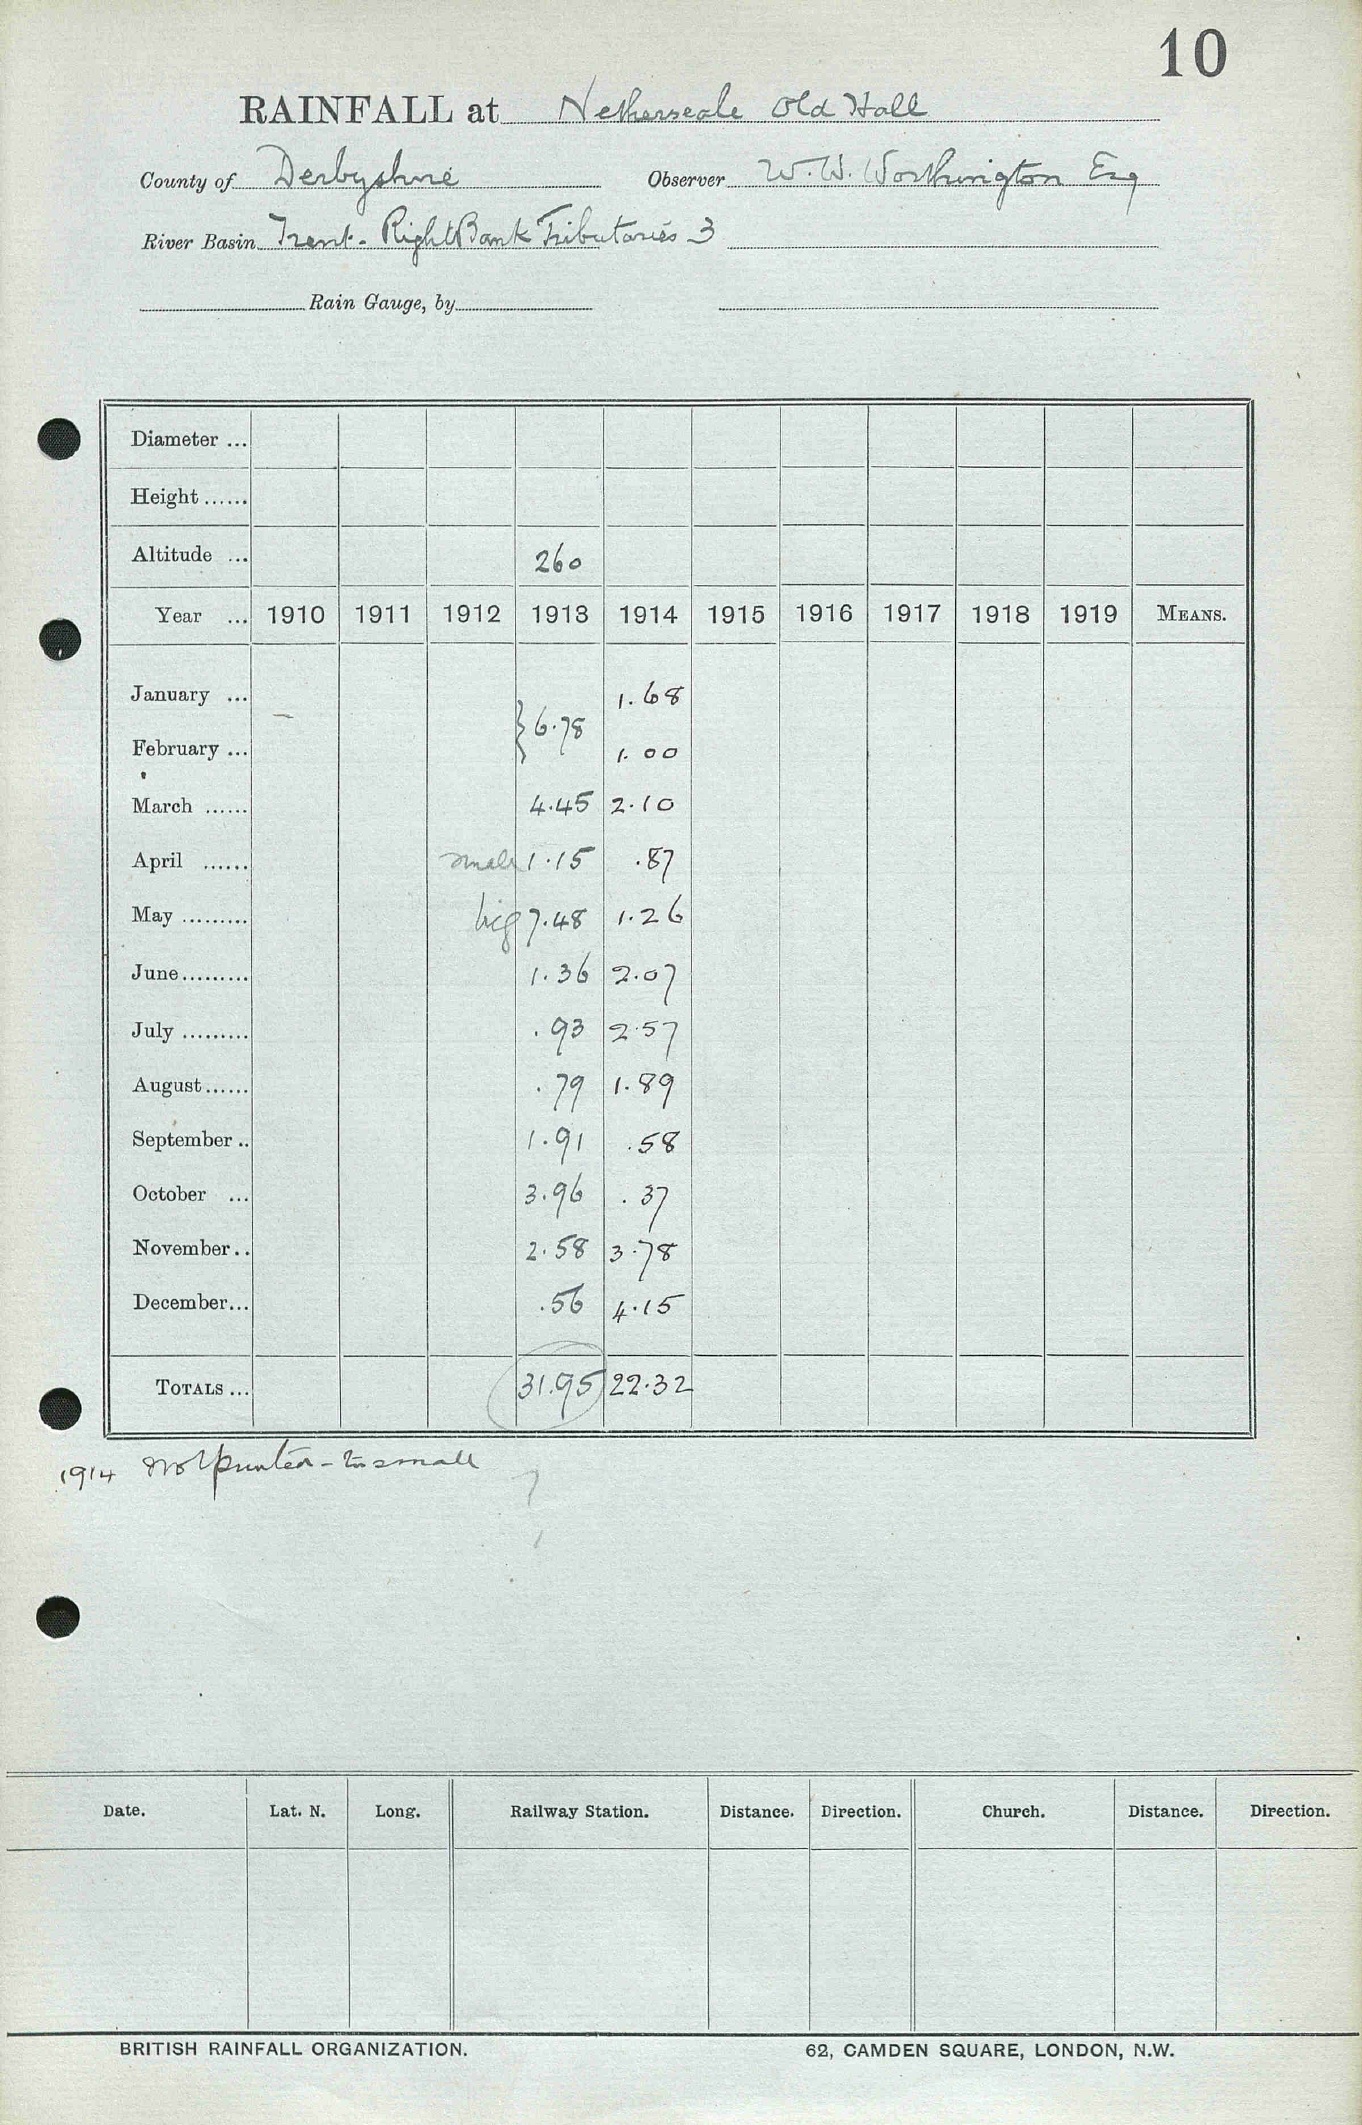 10
RAINFALL at Netherseale Old Hall
County of Derbyshire Observer W. W. Worthington Esq
River Basin Trent - Right Bank Tributaries 3
Rain Gauge, by
Diameter ...
Height ......
Altitude ... 260
Year ... 1910 1911 1912 1913 1914 1915 1916 1917 1918 1919 MEANS.
January ... 1.68
} 6.78
February ... 1.00
March ...... 4.45 2.10
April ...... small 1.15 .87
May ......... big 7.48 1.26
June ......... 1.36 2.07
July ......... .93 2.57
August ...... .79 1.89
September .. 1.91 .58
October ... 3.96 .37
November .. 2.58 3.78
December ... .56 4.15
TOTALS ... 31.95 22.32
1914 Not printed - too small
?
Date. Lat. N. Long. Railway Station. Distance. Direction. Church. Distance. Direction.
BRITISH RAINFALL ORGANIZATION. 62, CAMDEN SQUARE, LONDON, N.W.